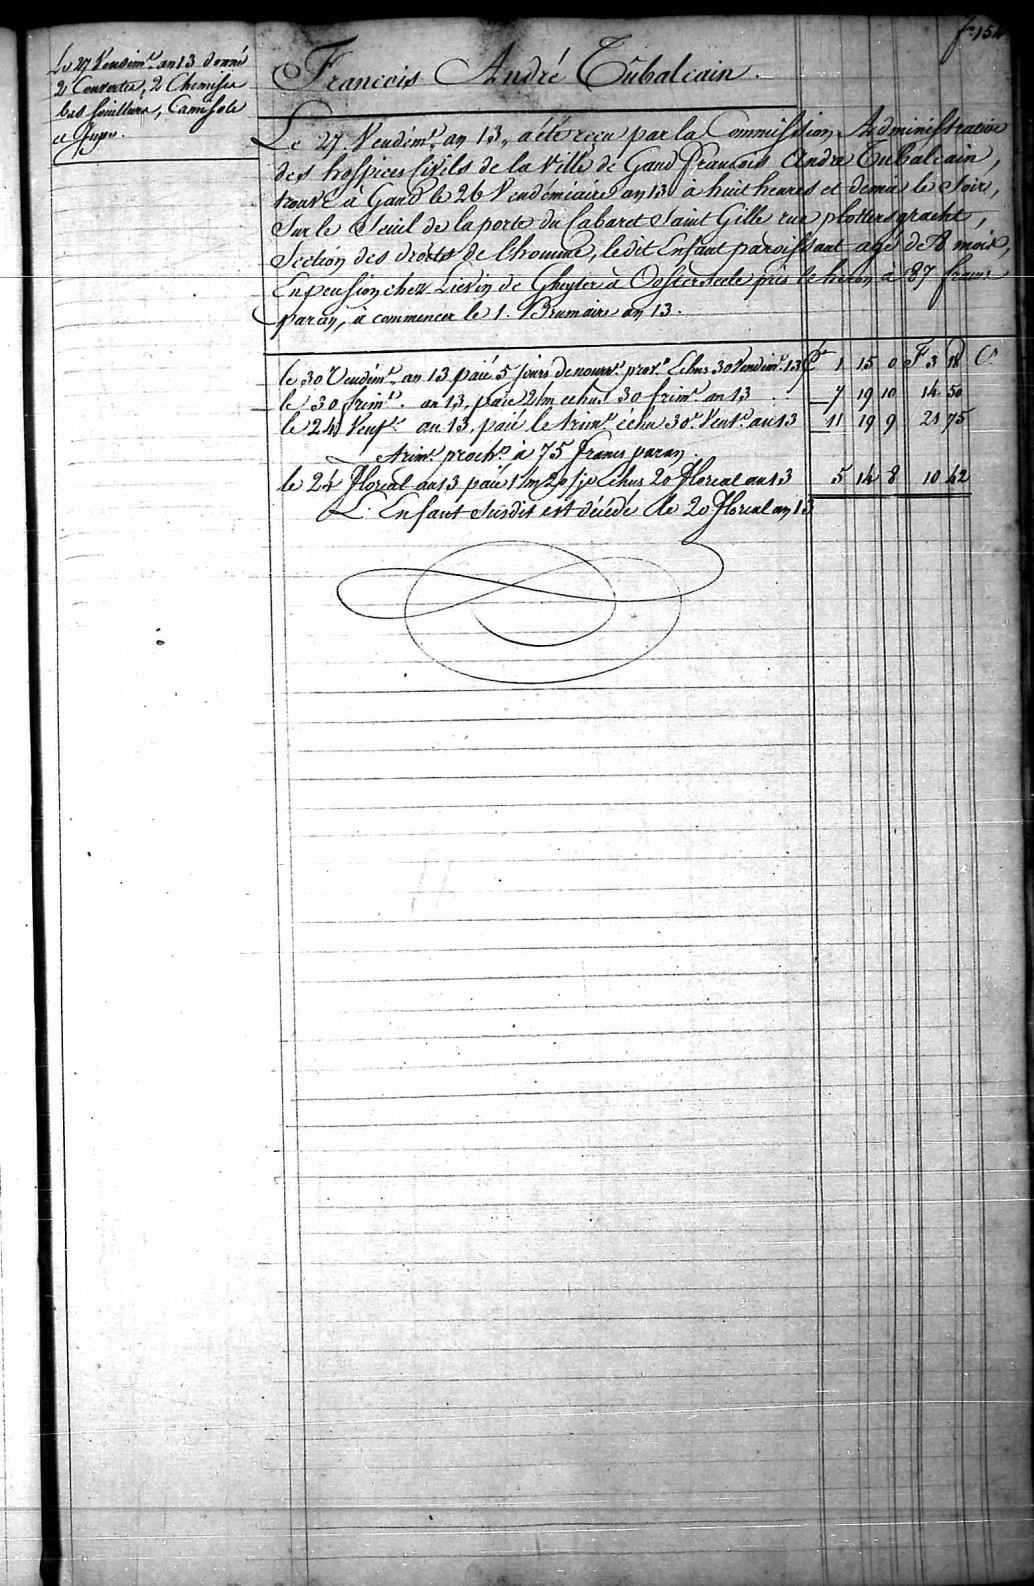 fo. 154
Le 27 Vendim.re an 13 donné
2 Couvertes, 2 Chemises
bas souilliers, Camisole
et Jupe.
Francois André Tubalcain.
Le 27. Vendém.re an 13, a été reçu par la Commission Administrative
des hospices civils de la Ville de Gand Francois André Tubalcain,
trouvé à Gand le 26 Vendémiaire an 13 à huit heures et demie le soir,
sur le seuil de la porte du Cabaret Saint Gille rue plottersgracht,
section des droits de l'homme, le dit Enfant paroissant agé de 8 mois,
En pension chez Lievin de Gheyter à Oosterseele près le heron à 87 francs
par an, à commencer le 1. Brumaire an 13.
le 30 Vendém.re an 13 paié 5 jours de nourr.re prov.e Echus 30 Vendim.re 13 £ 1 15 0 F 3 18 C
le 30 frim.re an 13, paié 2/m echus 30 frim.re an 13 7 19 10 14 50
le 24 Vent.se an 13, paié le trim.re échu 30.e Vent.se an 13 11 19 9 21 75
trim.re proch.n à 75 francs par an.
le 24 floreal an 13 paié 1/m 20/j.s Echus 20 floreal an 13 5 14 8 10 42
L'Enfant susdit est décédé le 20 floreal an 13